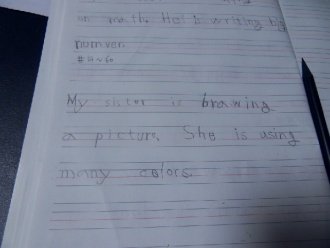 on math. He is writing
numver.
My sister is brawing
a picture. She is using
many colors.